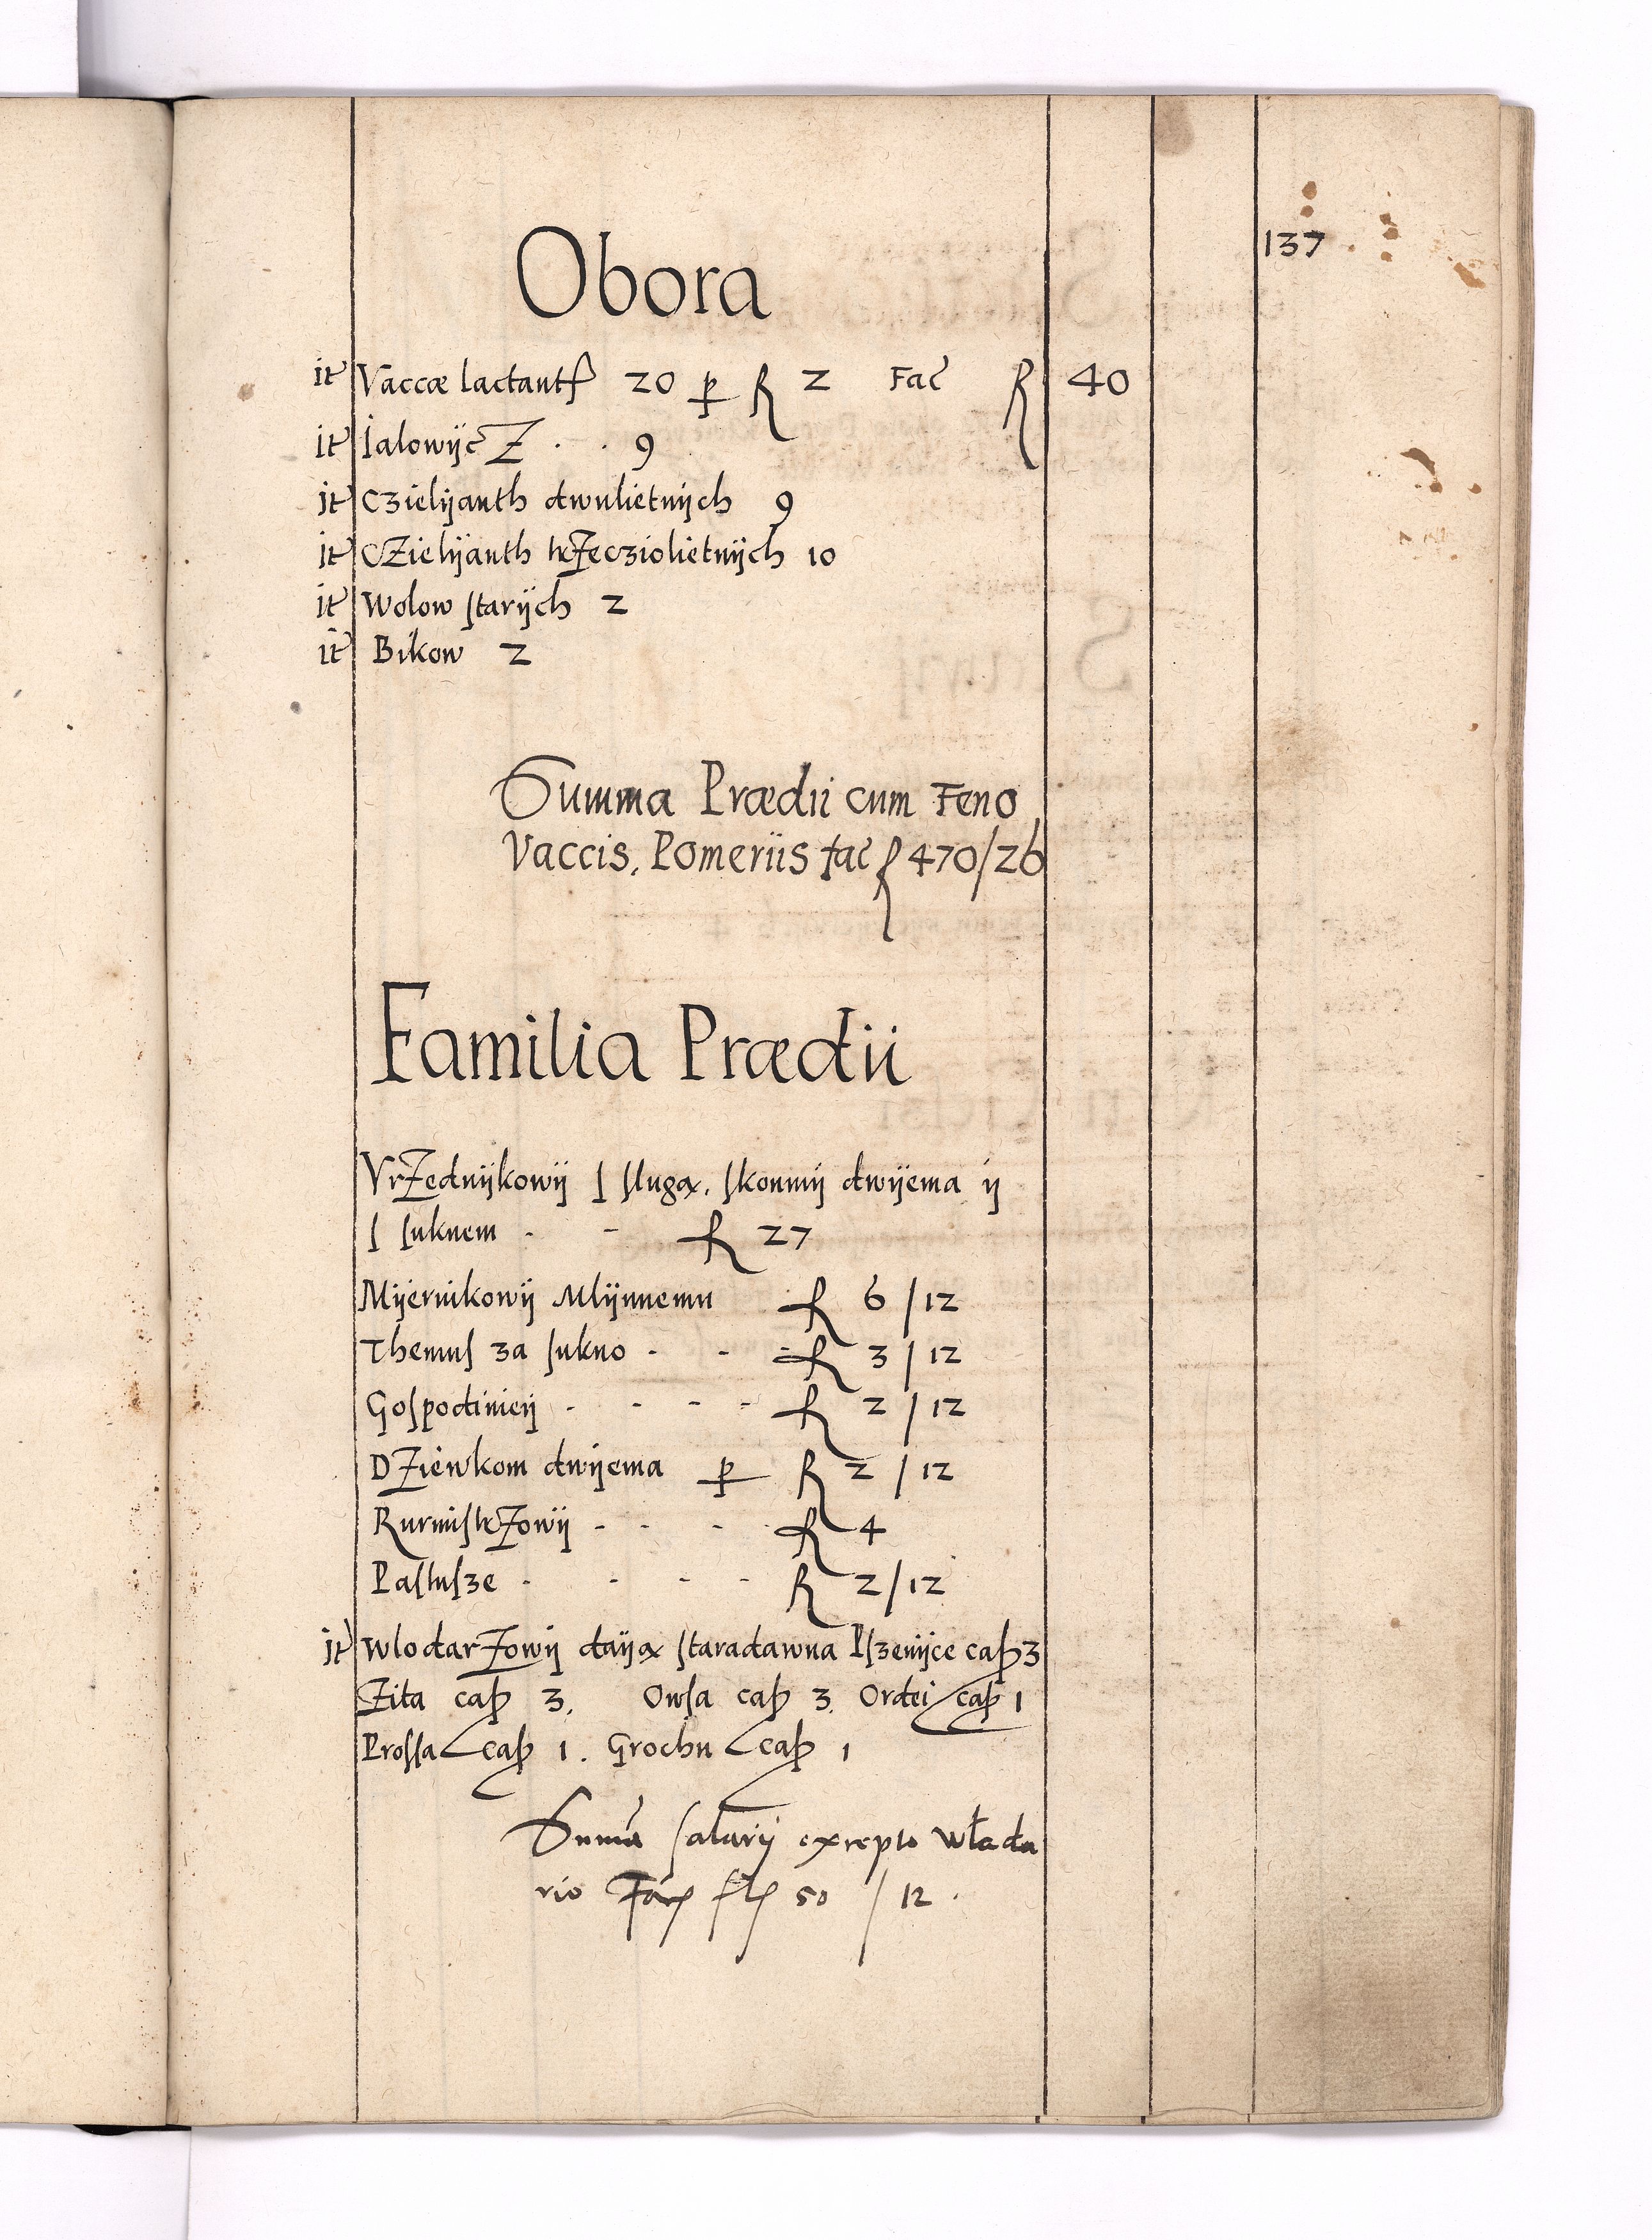 137
Obora
it Vaccæ lactantſ 20 p fl 2 Fac̃ fl 40
it Ialowijcz . . 9
it Czielijanth dwulietnijch 9
it Czielijanth trzecziolietnijch 10
it Wolow ſtarijch 2
it Bikow 2
Summa Prædii cum Feno
Vaccis, Pomeriis fac̃ fl 470/26
Familia Prædii
Vrzednijkowij ſ ſlugą, ſkonmij dwijema ij
ſ ſuknem - - fl 27
Mijernikowij Mlijnnemu fl 6 / 12
Themuſ za ſukno - - - fl 3 / 12
Goſpodinieij - - - - fl 2 / 12
Dziewkom dwijema p fl 2 / 12
Rurmiſtrzowij - - - fl 4
Paſtuſze - - - - fl 2/12
it Wlodarzowij daiją ſtaradawna Pſzenijce cap 3
Zita cap 3, Owſa cap 3, Ordei cap 1
Proſſa cap 1 . Grochu cap 1
Summa ſalarij excepto włoda
rio Fac fl 50 / 12 .